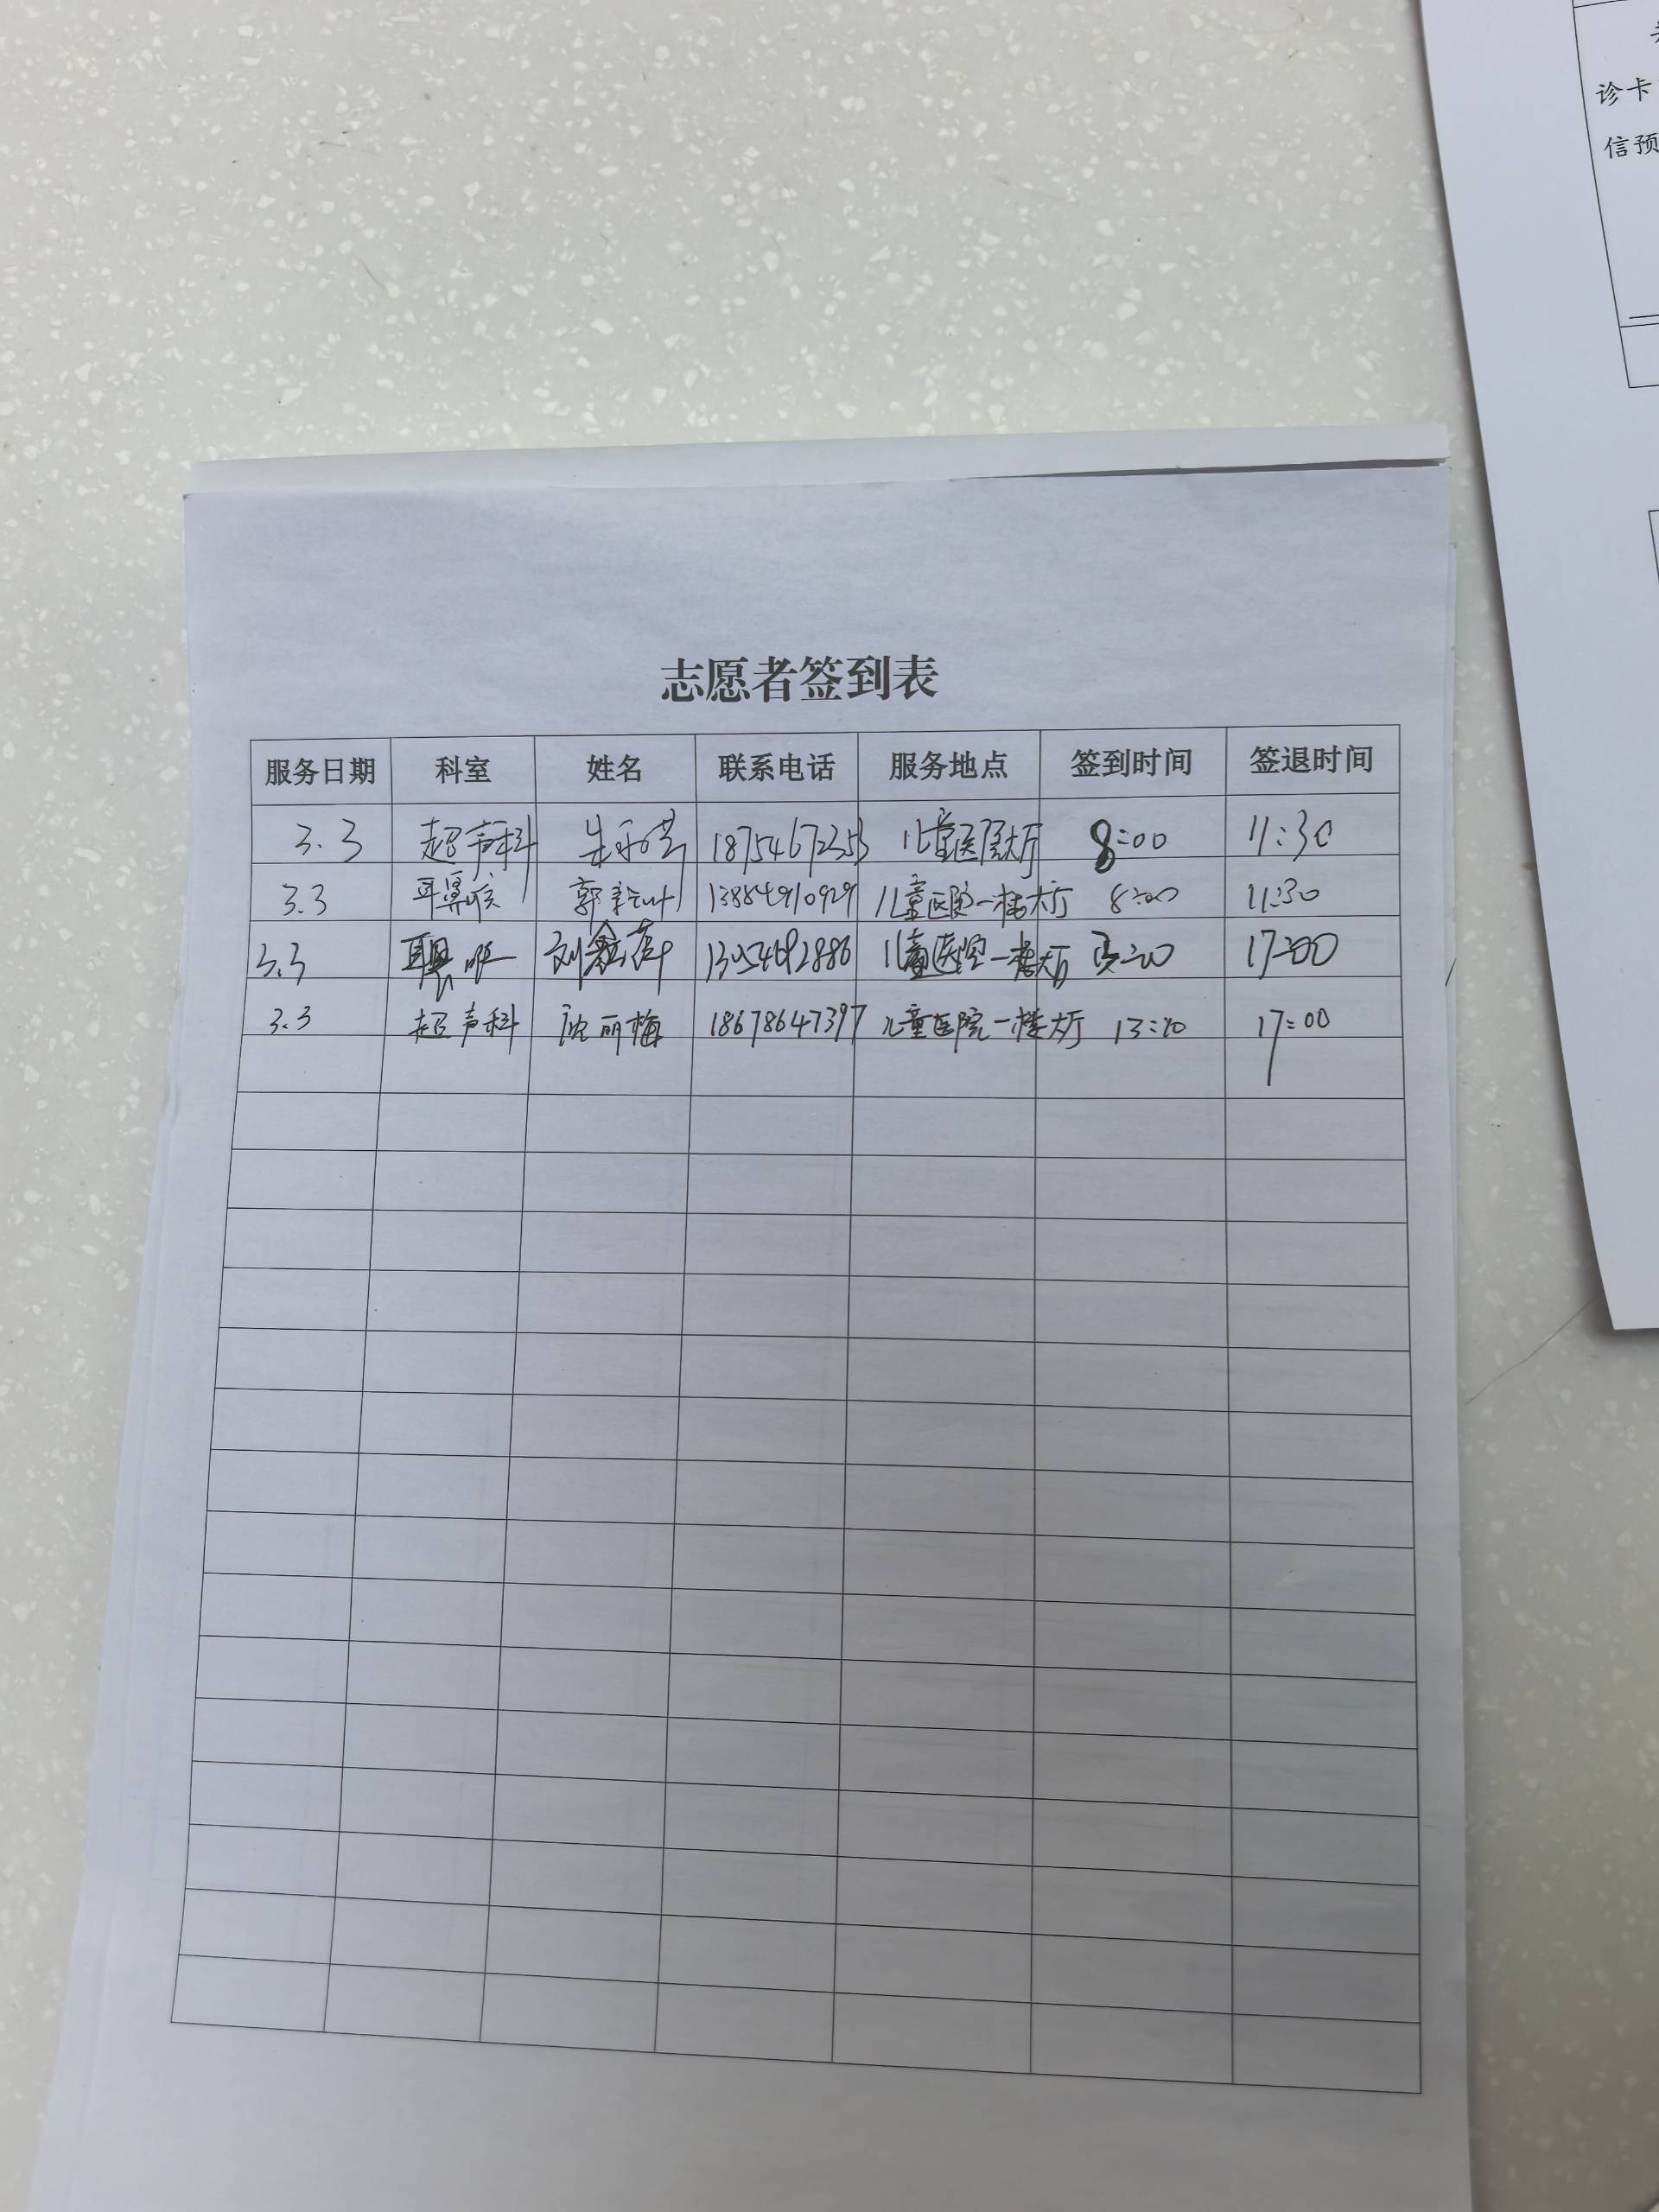 诊卡
信预
志愿者签到表
服务日期 科室 姓名 联系电话 服务地点 签到时间 签退时间
3.3 超声科 18754672353 儿童医院大厅 8:00 11:30
3.3 耳鼻喉 郭新叶 13884910929 儿童医院一楼大厅 8:00 11:30
3.3 刘鑫萍 儿童医院一楼大厅 17:00
3.3 超声科 沈丽梅 18678647397 儿童医院一楼大厅 17:00